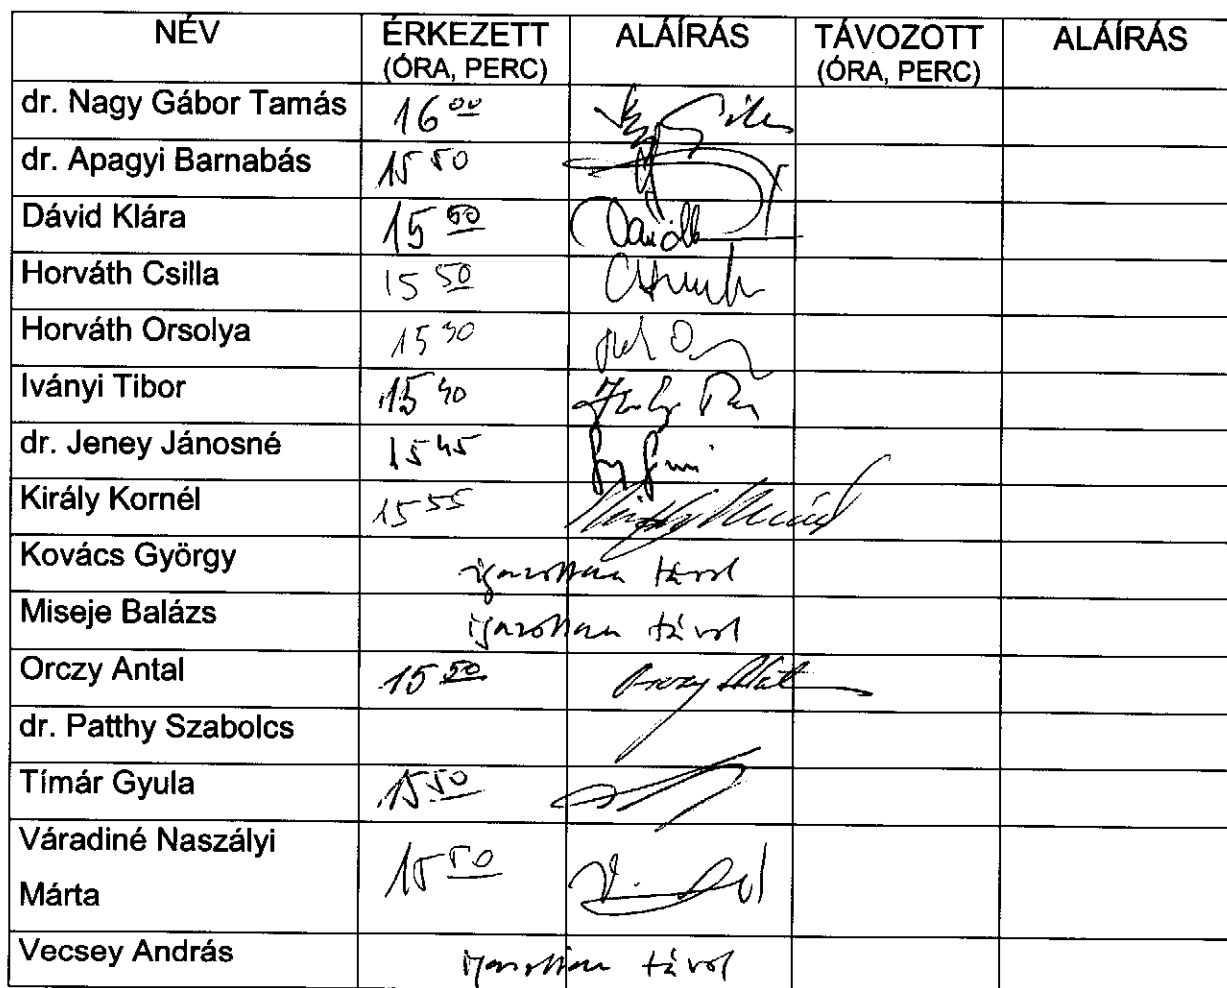 NÉV ÉRKEZETT (ÓRA, PERC) ALÁÍRÁS TÁVOZOTT (ÓRA, PERC) ALÁÍRÁS
dr. Nagy Gábor Tamás 16 00
dr. Apagyi Barnabás 15 50
Dávid Klára 15 50
Horváth Csilla 15 50
Horváth Orsolya 15
Iványi Tibor 15 40
dr. Jeney Jánosné 15 45
Király Kornél 15 55
Kovács György igazoltan távol
Miseje Balázs igazoltan távol
Orczy Antal 15 50
dr. Patthy Szabolcs
Tímár Gyula 15 50
Váradiné Naszályi
Márta 15 50
Vecsey András igazoltan távol